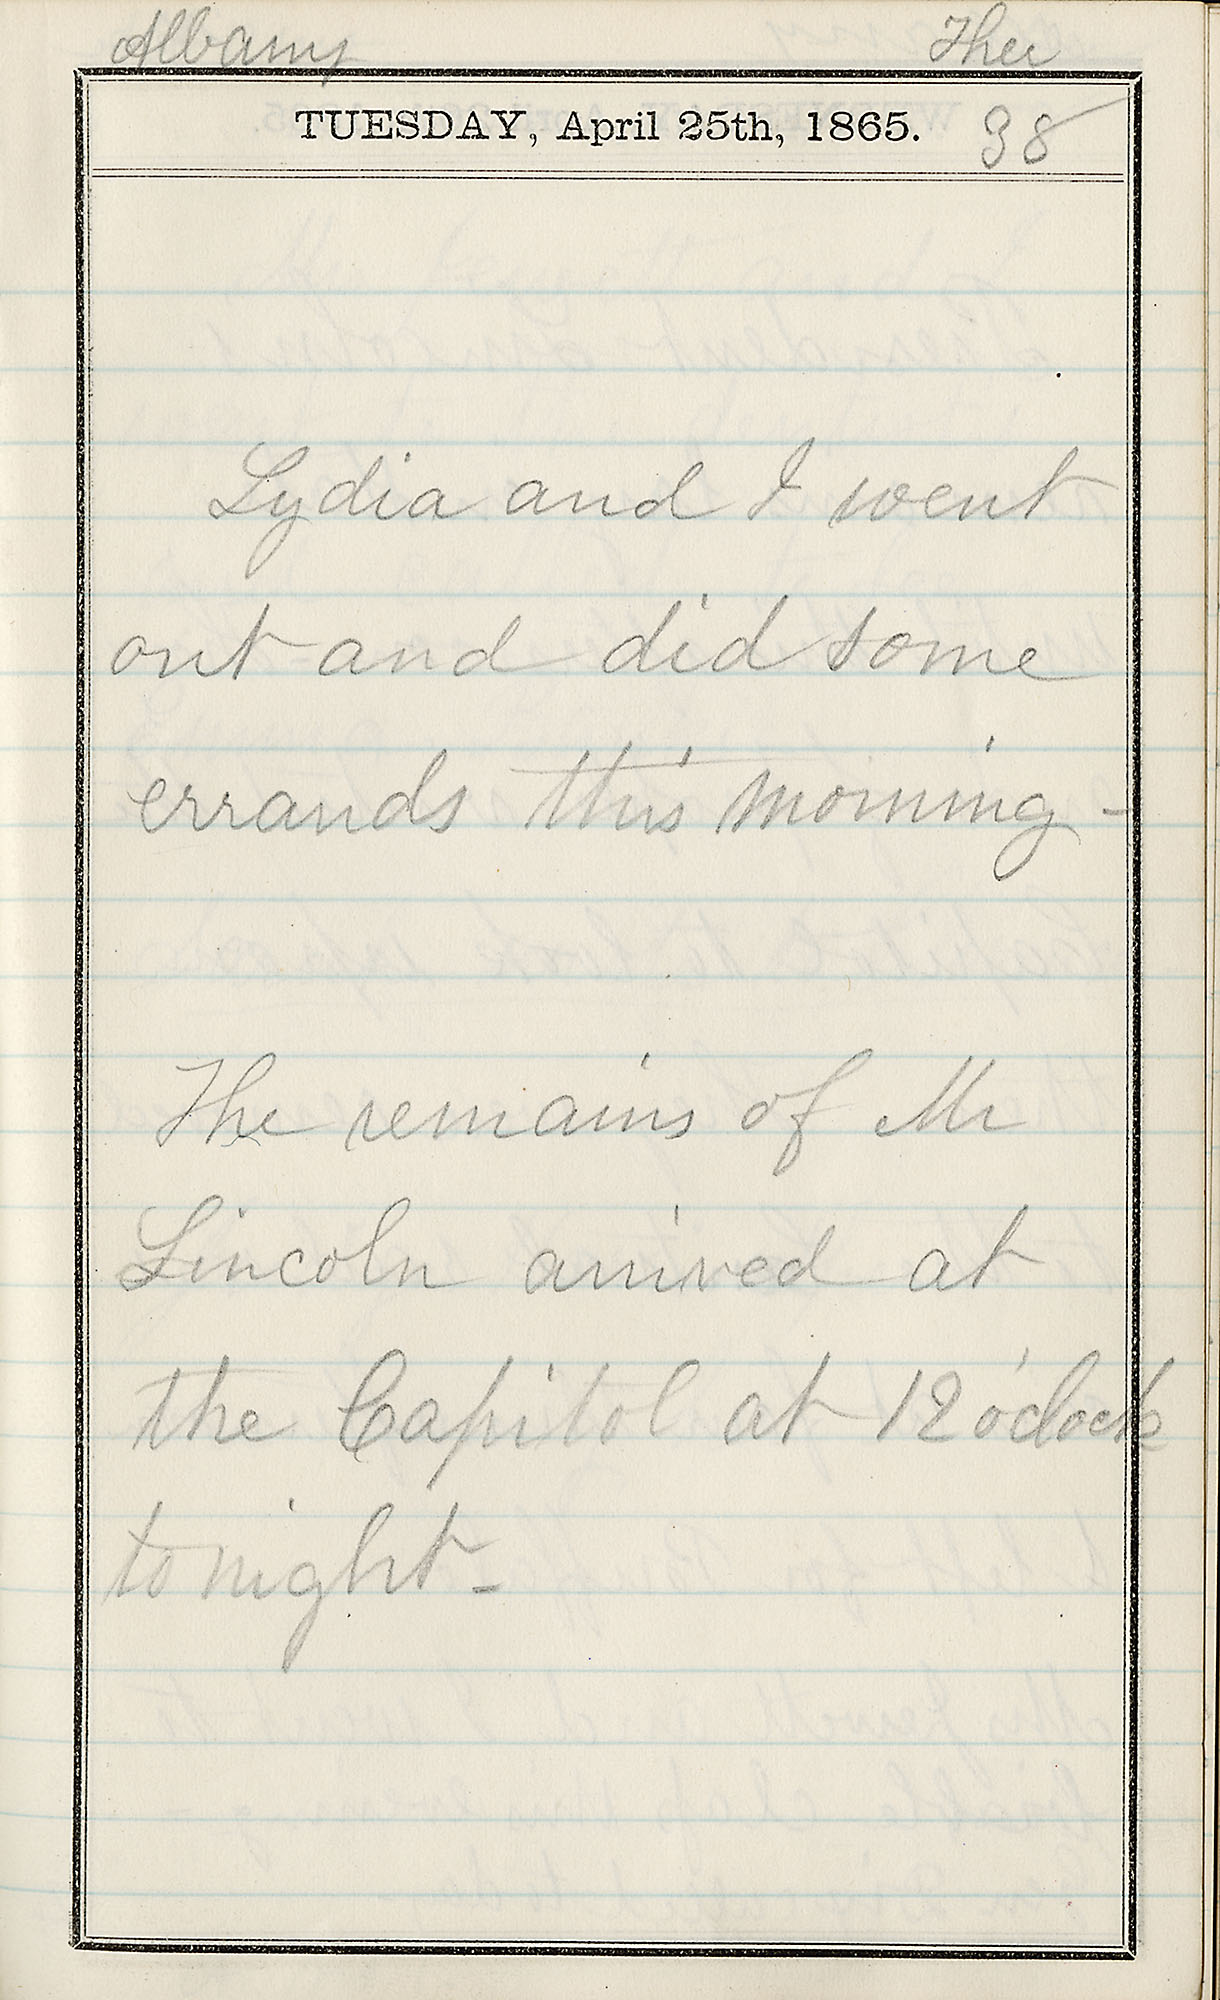 Albany Ther
TUESDAY, April 25th, 1865. 38
Lydia and I went
out and did some
errands this morning -
The remains of Mr
Lincoln arrived at
the Capitol at 12 o'clock
to night -